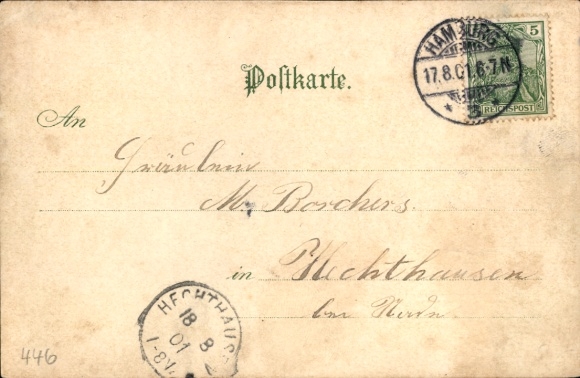 HAMBURG
17.8.01.6-7N
* 3
5
REICHSPOST
Postkarte.
An
Fräulein
M. Borchers.
in Hechthausen
bei
HECHTHAUS
18 8
01
446